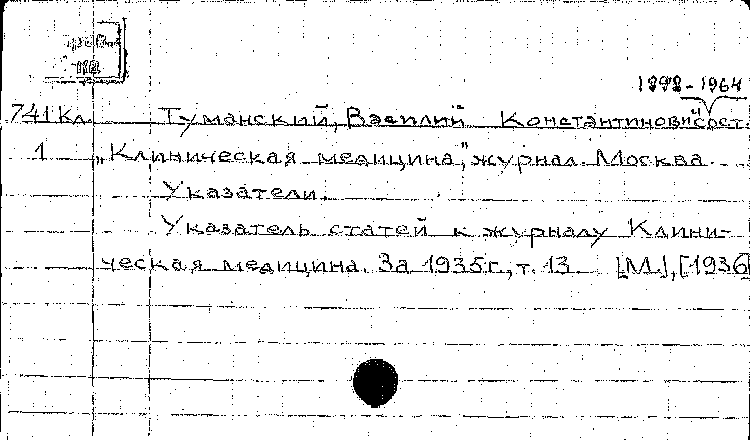 1898-1964
741 Кл. Туманский, Василий Константинович сост.
1 „Клиническая медицина", журнал. Москва.
Указатели.
Указатель статей к журналу Клини-
ческая медицина. За 1935 г., т. 13 [М.], [1936